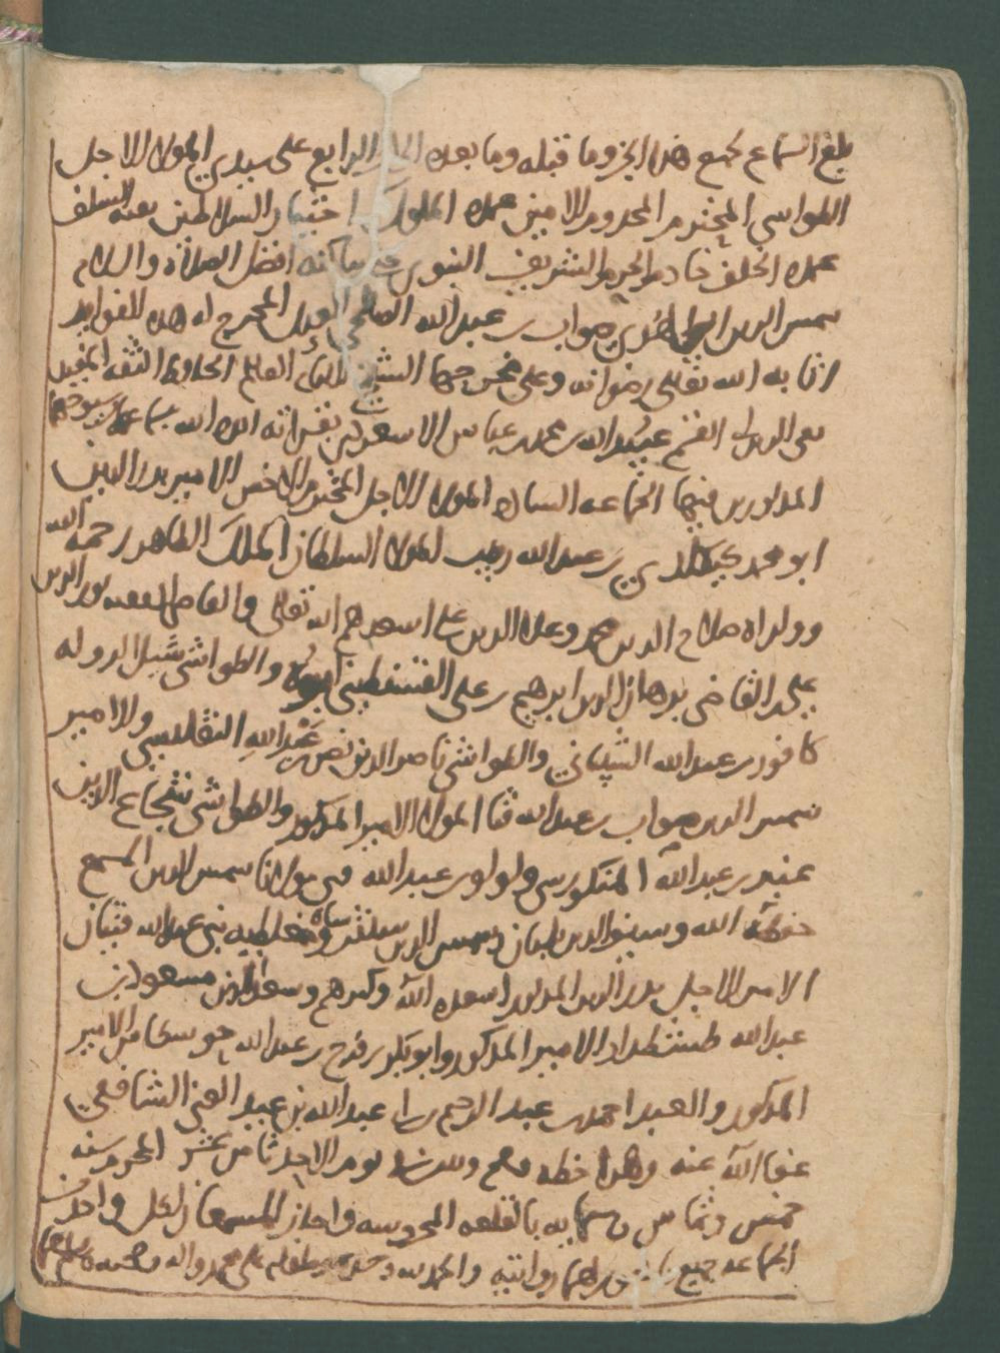 بلغ السماع لجميع هذا الجزء وما قبله وما بعده الى الرابع على سيدي المولى الاجل
الطواشي المحترم المخدوم الامين عمدة الملوك اختيار السلاطين بقية السلف
عمدة الخلف خادم الحرم الشريف النبوي على ساكنه افضل الصلاة والسلام
شمس الدين صواب بن عبد الله المخرج له هذه الفوايد
اثابه الله تعالى رضوانه وعلى مخرجها الشيخ الامام العالم الحافظ الثقة المفيد
تقي الدين ابي القسم عبيد الله بن محمد بن عباس الاسعردي بقراته ايده الله
المذكورين فيها الجماعة السادة المولى الاجل المحترم الاخص الامير بدر الدين
ابو محمد بن عبد الله ربيب المولى السلطان الملك الظاهر رحمه الله
وولداه صلاح الدين محمد وعلاء الدين علي اسعدهم الله تعالى والقاضي الفقيه نور الدين
علي بن القاضي برهان الدين ابرهيم بن علي والطواشي شبل الدولة
كافور بن عبد الله والطواشي ناصر الدين نصر بن عبد الله التفليسي والامير
شمس الدين صواب بن عبد الله فتا المولى الامير المذكور والطواشي شجاع الدين
عنبر بن عبد الله ولولو بن عبد الله فتى مولانا شمس الدين المسمع
حفظه الله وسيف الدين بلبان وشمس الدين سنقر بني عبد الله فتيان
الامير الاجل بدر الدين المذكور اسعده الله وكبرهم وسعد الدين مسعود بن
عبد الله الامير المذكور وابو بكر بن فرح بن عبد الله الامير
المذكور والعبد احمد بن عبد الرحيم بن عبد الله بن عبد الغني الشافعي
عفا الله عنه وهذا خطه يوم الاحد ثامن عشر المحرم سنة
خمس وثمانين وستمايه بالقلعة المحروسة واجاز المسمعان لكل واحد من
الجماعة جميع روايته والحمد لله وحده وصلواته على محمد واله وصحبه